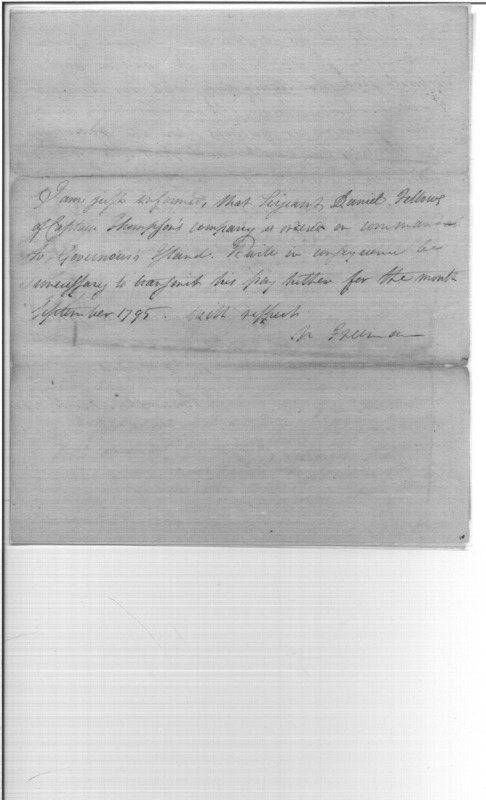 I am just informed, that Serjeant Daniel Fellows
of Captain Thompson's company is ordered on command
to Governour's Island. It will in consequence be
unnecessary to transmit his pay hither for the month
September 1795. with respect
N Freeman